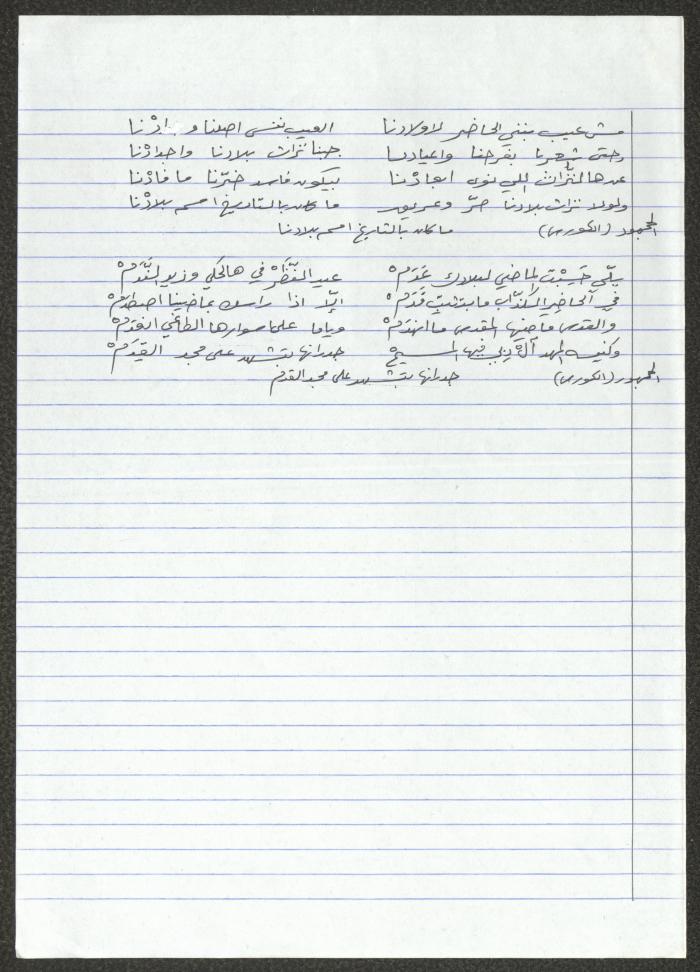 مش عيب نبني الحاضر لاولادنا العيب ننسى اصلنا و
وحتى يشعروا بفرحنا واعيادنا جبنا تراث بلادنا واجدادْنا
عن هالتراث اللي نوى ابعادْنا بيكون فاسد ضرّنا ما فادْنا
ولولا تراث بلادنا ما كان بالتاريخ اسم بلادْنا
الجمهور (الكورس) ما كان بالتاريخ اسم بلادنا
يلّي حَسَبْت الماضي لبلادك عَدَمْ عيد النَّظَرْ في هالحكي وزيد النَّدَمْ
في الحاضِر الكذّاب ما بتثبت قَدَمْ إلّا اذا راسك بماضينا اصطدَمْ
والقدس ماضيها المقدس ما انهدَمْ وياما على سوارها الطاغي انعَدَمْ
وكنيسة المهد فيها المسيح جدرانها بتشهد على مجد القِدَمْ
الجمهور (الكورس) جدرانها بتشهد على مجد القدم